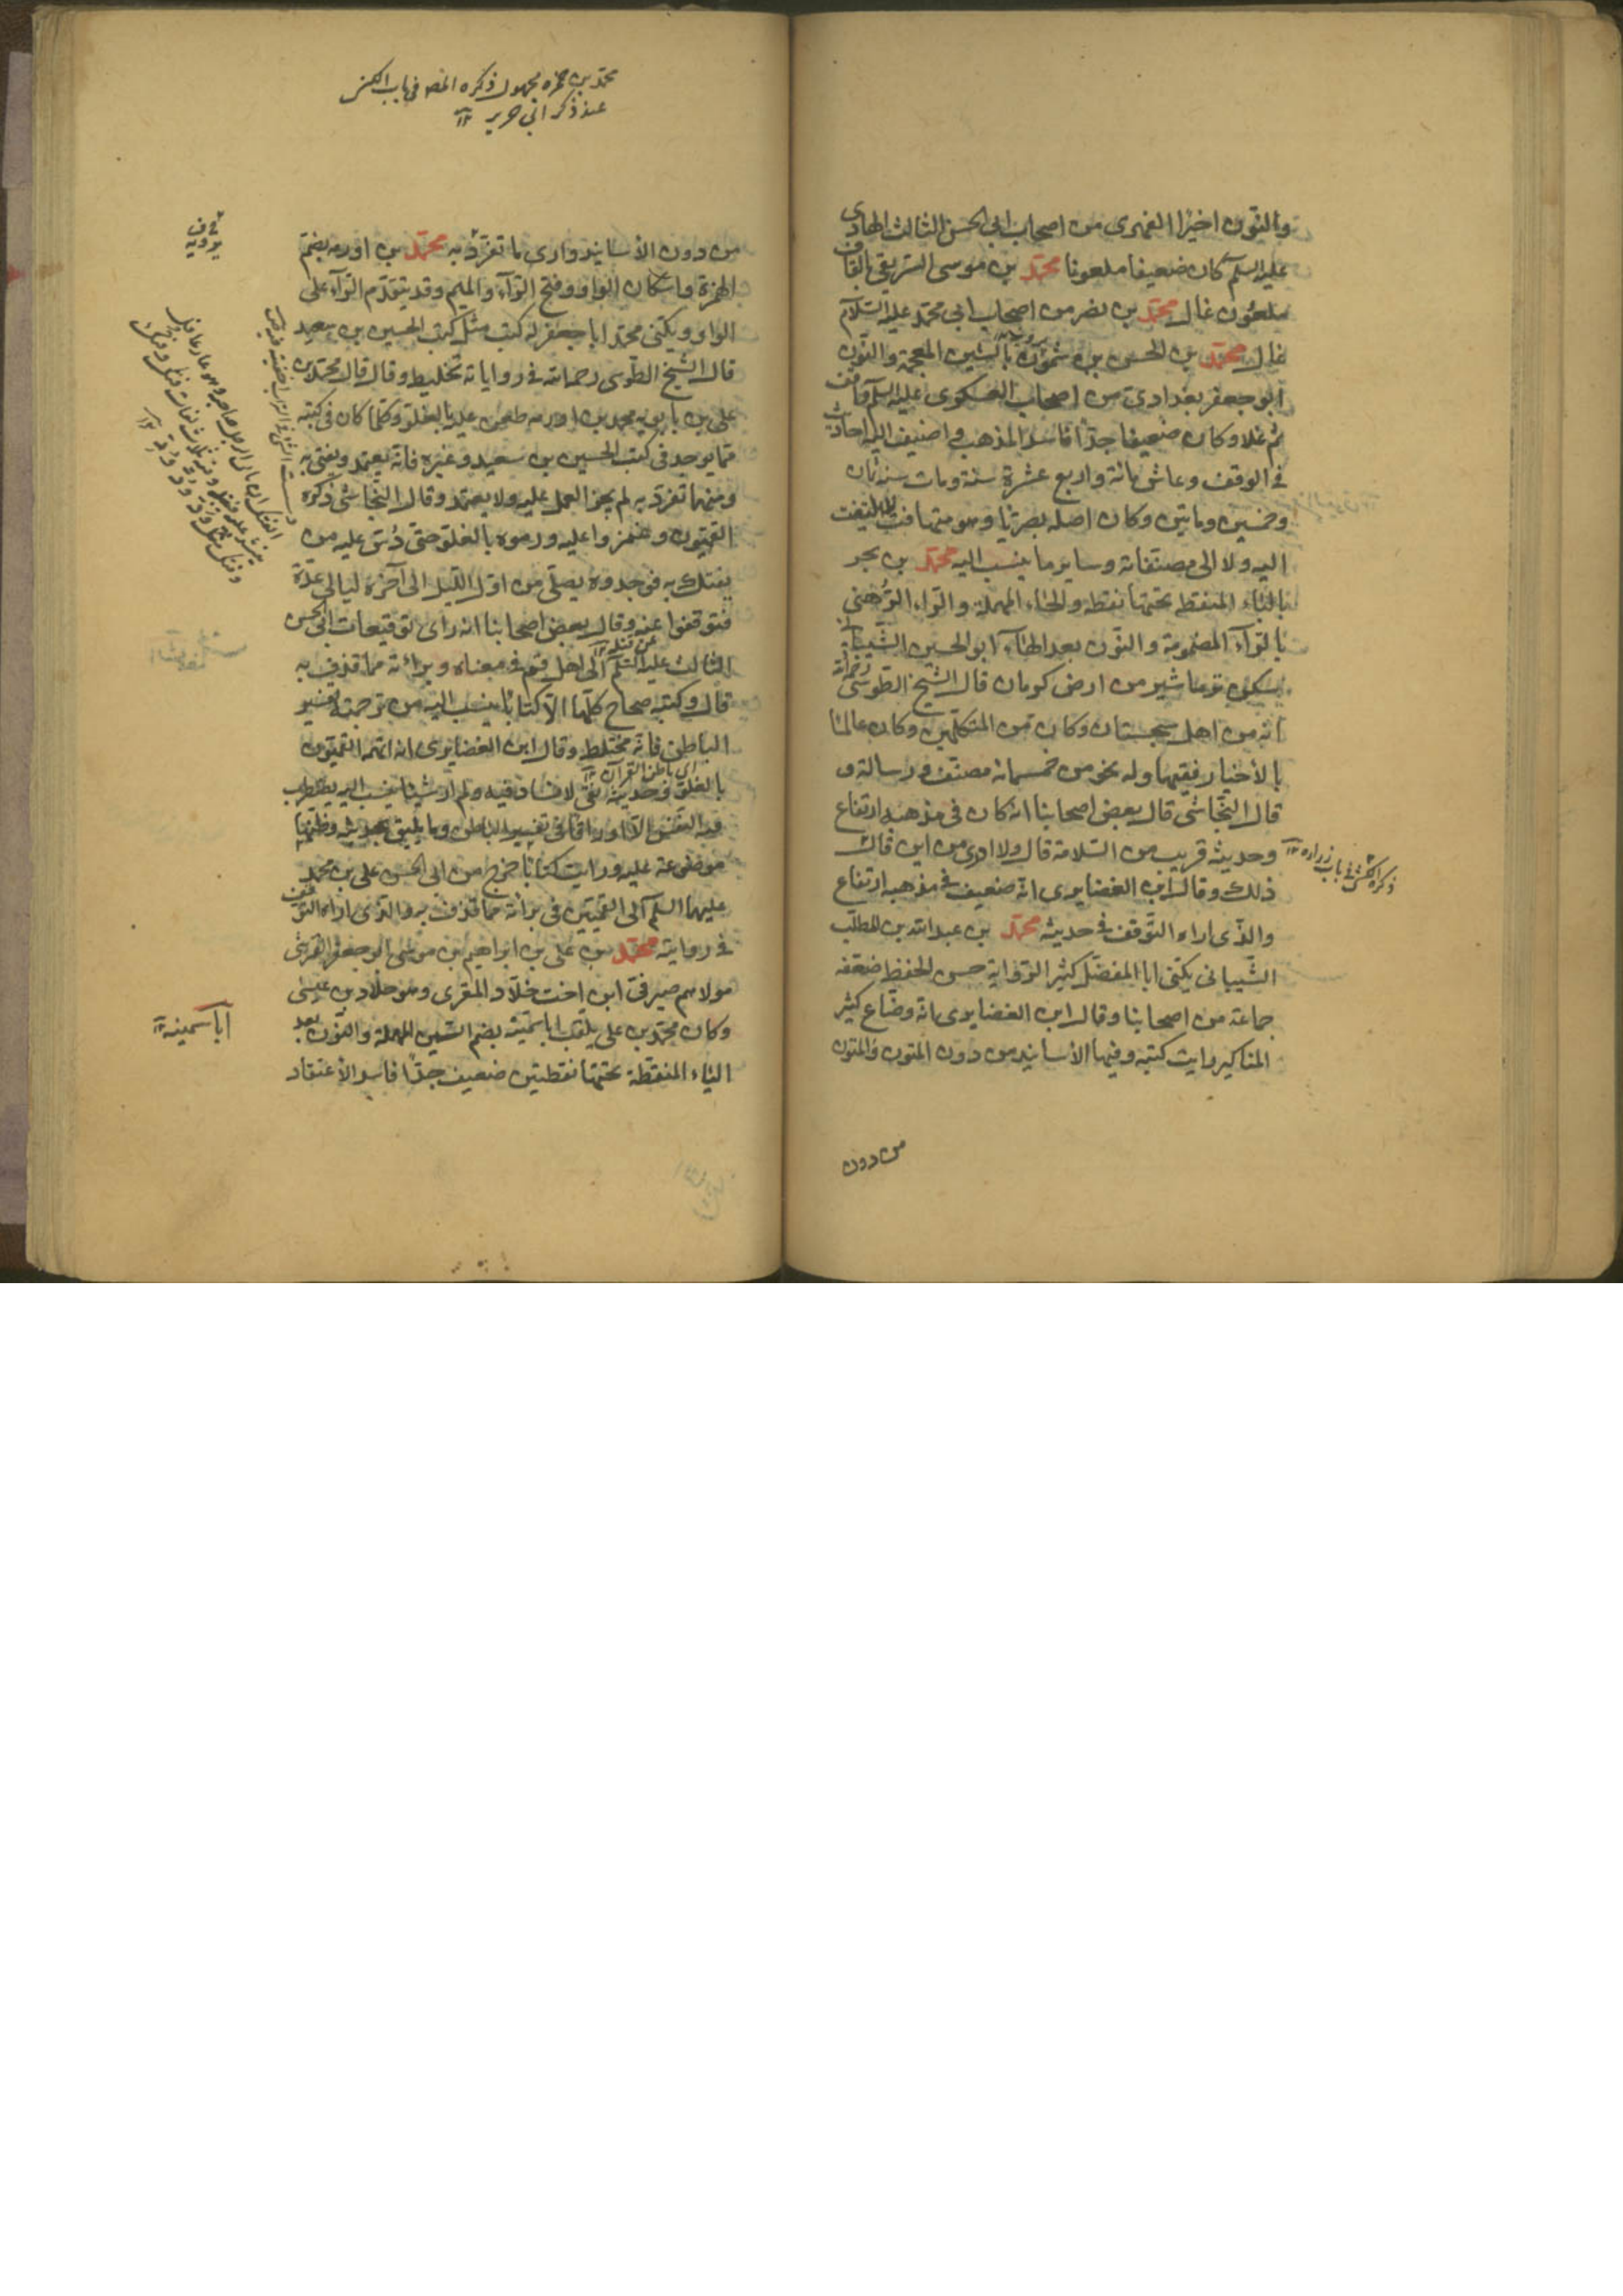 وبالنون اخيرا النميرى من اصحاب ابى الحسن الثالث الهادى
عليه السلم كان ضعيفا ملعونا محمد بن موسى الشريقى بالقاف
ملعون غال محمد بن نصر من اصحاب ابى محمد عليه السلام
غال محمد بن الحسن بن شمون بالشين المعجمة والنون
ابو جعفر بغدادى من اصحاب العسكرى عليه السلم واقف
ثم غلا وكان ضعيفا جدا فاسد المذهب واضيف اليه احاديث
فى الوقف وعاش مائة واربع عشرة سنة ومات سنة ثمان
وخمسين ومايتين وكان اصله بصريا وهو متهافت لا يلتفت
اليه ولا الى مصنفاته وساير ما ينسب اليه محمد بن بحر
بالباء المنقطة تحتها نقطة والحاء المهملة والراء الرهنى
بالراء المضمومة والنون بعد الهاء ابو الحسين الشيبانى
يسكن نرماشير من ارض كرمان قال الشيخ الطوسى رحمه الله
انه من اهل سجستان وكان من المتكلمين وكان عالما
بالاخيار فقيها وله نحو من خمسمائة مصنف ورسالة و
قال النجاشى قال بعض اصحابنا انه كان فى مذهبه ارتفاع
وحديثه قريب من السلامة قال ولا ادرى من اين قال
ذلك وقال ابن الغضايرى انه ضعيف فى مذهبه ارتفاع
والذى اراه التوقف فى حديثه محمد بن عبد الله بن المطلب
الشيبانى يكنى ابا المفضل كثير الرواية حسن الحفظ ضعفه
جماعة من اصحابنا وقال ابن الغضايرى انه وضاع كثير
المناكير رايت كتبه وفيها الاسانيد من دون المتون والمتون
من دون
ذكره الكش فى باب زراره ١٢
محمد بن حمزه مجهول ذكره المصـ فى باب الكنى
عند ذكر ابى جرير ١٢
من دون الاسانيد وارى ما تفرد به محمد بن اورمه بضم
الهمزة واسكان الواو وفتح الراء والميم وقد يتقدم الراء على
الواو ويكنى محمد ابا جعفر له كتب مثل كتب الحسين بن سعيد
قال الشيخ الطوسى رحمه الله فى رواياته تخليط وقال قال محمد بن
على بن بابويه محمد بن اورمه طعن عليه بالغلو وكلما كان فى كتبه
مما يوجد فى كتب الحسين بن سعيد وغيره فانه يعتمد ويفتى به
ومنهما تفرد به لم يجز العمل عليه ولا يعتمد وقال النجاشى ذكره
القميون وغمزوا عليه ورموه بالغلو حتى دس عليه من
يفتك به فوجدوه يصلى من اول الليل الى آخره ليالى عدة
فتوقفوا عنه وقال بعض اصحابنا انه راى توقيعات ابى الحسن
عن قتله ١٢
الثالث عليه السلم الى اهل قم فى معناه وبرائة مما قذف به
قال وكتبه صحاح كلها الا كتابا ينسب اليه من ترجمة تفسير
الباطن فانه مختلط وقال ابن الغضايرى انه اتهمه القميون
اى باطن القرآن ١٢
بالغلو وحديثه نقى لا فساد فيه ولم ار شيئا ينسب اليه يضطرب
فيه النفس الا اوراقا فى تفسير الباطن وما يليق بحديثه واظنها
موضوعة عليه ورايت كتابا خرج من ابى الحسن على بن محمد
عليهما السلم الى القميين فى برائة مما قذف به والذى اراه التوقف
فى رواية محمد بن على بن ابراهيم بن موسى ابو جعفر القرشى
مولاهم صيرفى ابن اخت خلاد المقرى وهو خلاد بن عيسى
وكان محمد بن على يلقب ابا سمينه بضم السين المهملة والنون بعد
الياء المنقطة تحتها نقطتين ضعيف جدا فاسد الاعتقاد
ابا سمينه ١٢